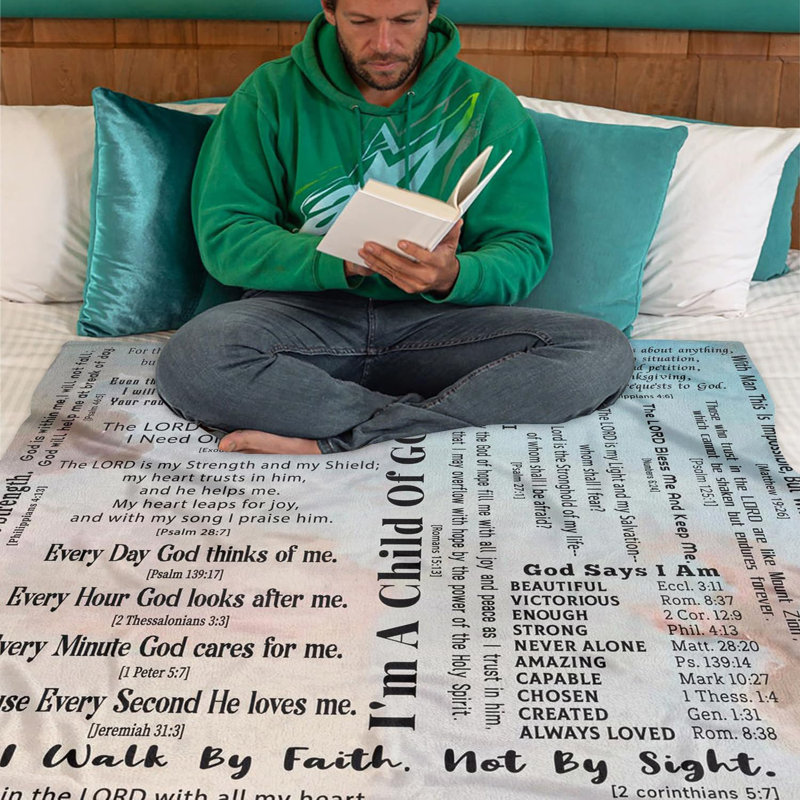 God is within me, I will not fall;
God will help me at break of day.
[Psalm 46:5]
Strength.
[Philippians 4:13]
For th
bu
Even th
I will
Your ro
The LORD
I Need O
[Exo
The LORD is my Strength and my Shield;
my heart trusts in him,
and he helps me.
My heart leaps for joy,
and with my song I praise him.
[Psalm 28:7]
Every Day God thinks of me.
[Psalm 139:17]
Every Hour God looks after me.
[2 Thessalonians 3:3]
very Minute God cares for me.
[1 Peter 5:7]
use Every Second He loves me.
[Jeremiah 31:3]
I'm A Child Of GO
the God of hope fill me with all joy and peace as I trust in him,
that I may overflow with hope by the power of the Holy Spirit.
[Romans 15:13]
I
The LORD is my Light and my Salvation--
whom shall I fear?
Lord is the Stronghold of my life--
of whom shall I be afraid?
[Psalm 27:1]
about anything,
situation,
and petition,
nksgiving,
requests to God.
ippians 4:6]
The LORD Bless Me And Keep Me.
[Numbers 6:24]
Those who trust in the LORD are like Mount Zion,
which cannot be shaken but endures forever.
[Psalm 125:1]
With Man This Is Impossible, But
[Matthew 19:26]
God Says I Am
BEAUTIFUL Eccl. 3:11
VICTORIOUS Rom. 8:37
ENOUGH 2 Cor. 12:9
STRONG Phil. 4:13
NEVER ALONE Matt. 28:20
AMAZING Ps. 139:14
CAPABLE Mark 10:27
CHOSEN 1 Thess. 1:4
CREATED Gen. 1:31
ALWAYS LOVED Rom. 8:38
I Walk By Faith, Not By Sight.
[2 corinthians 5:7]
in the LORD with all my heart